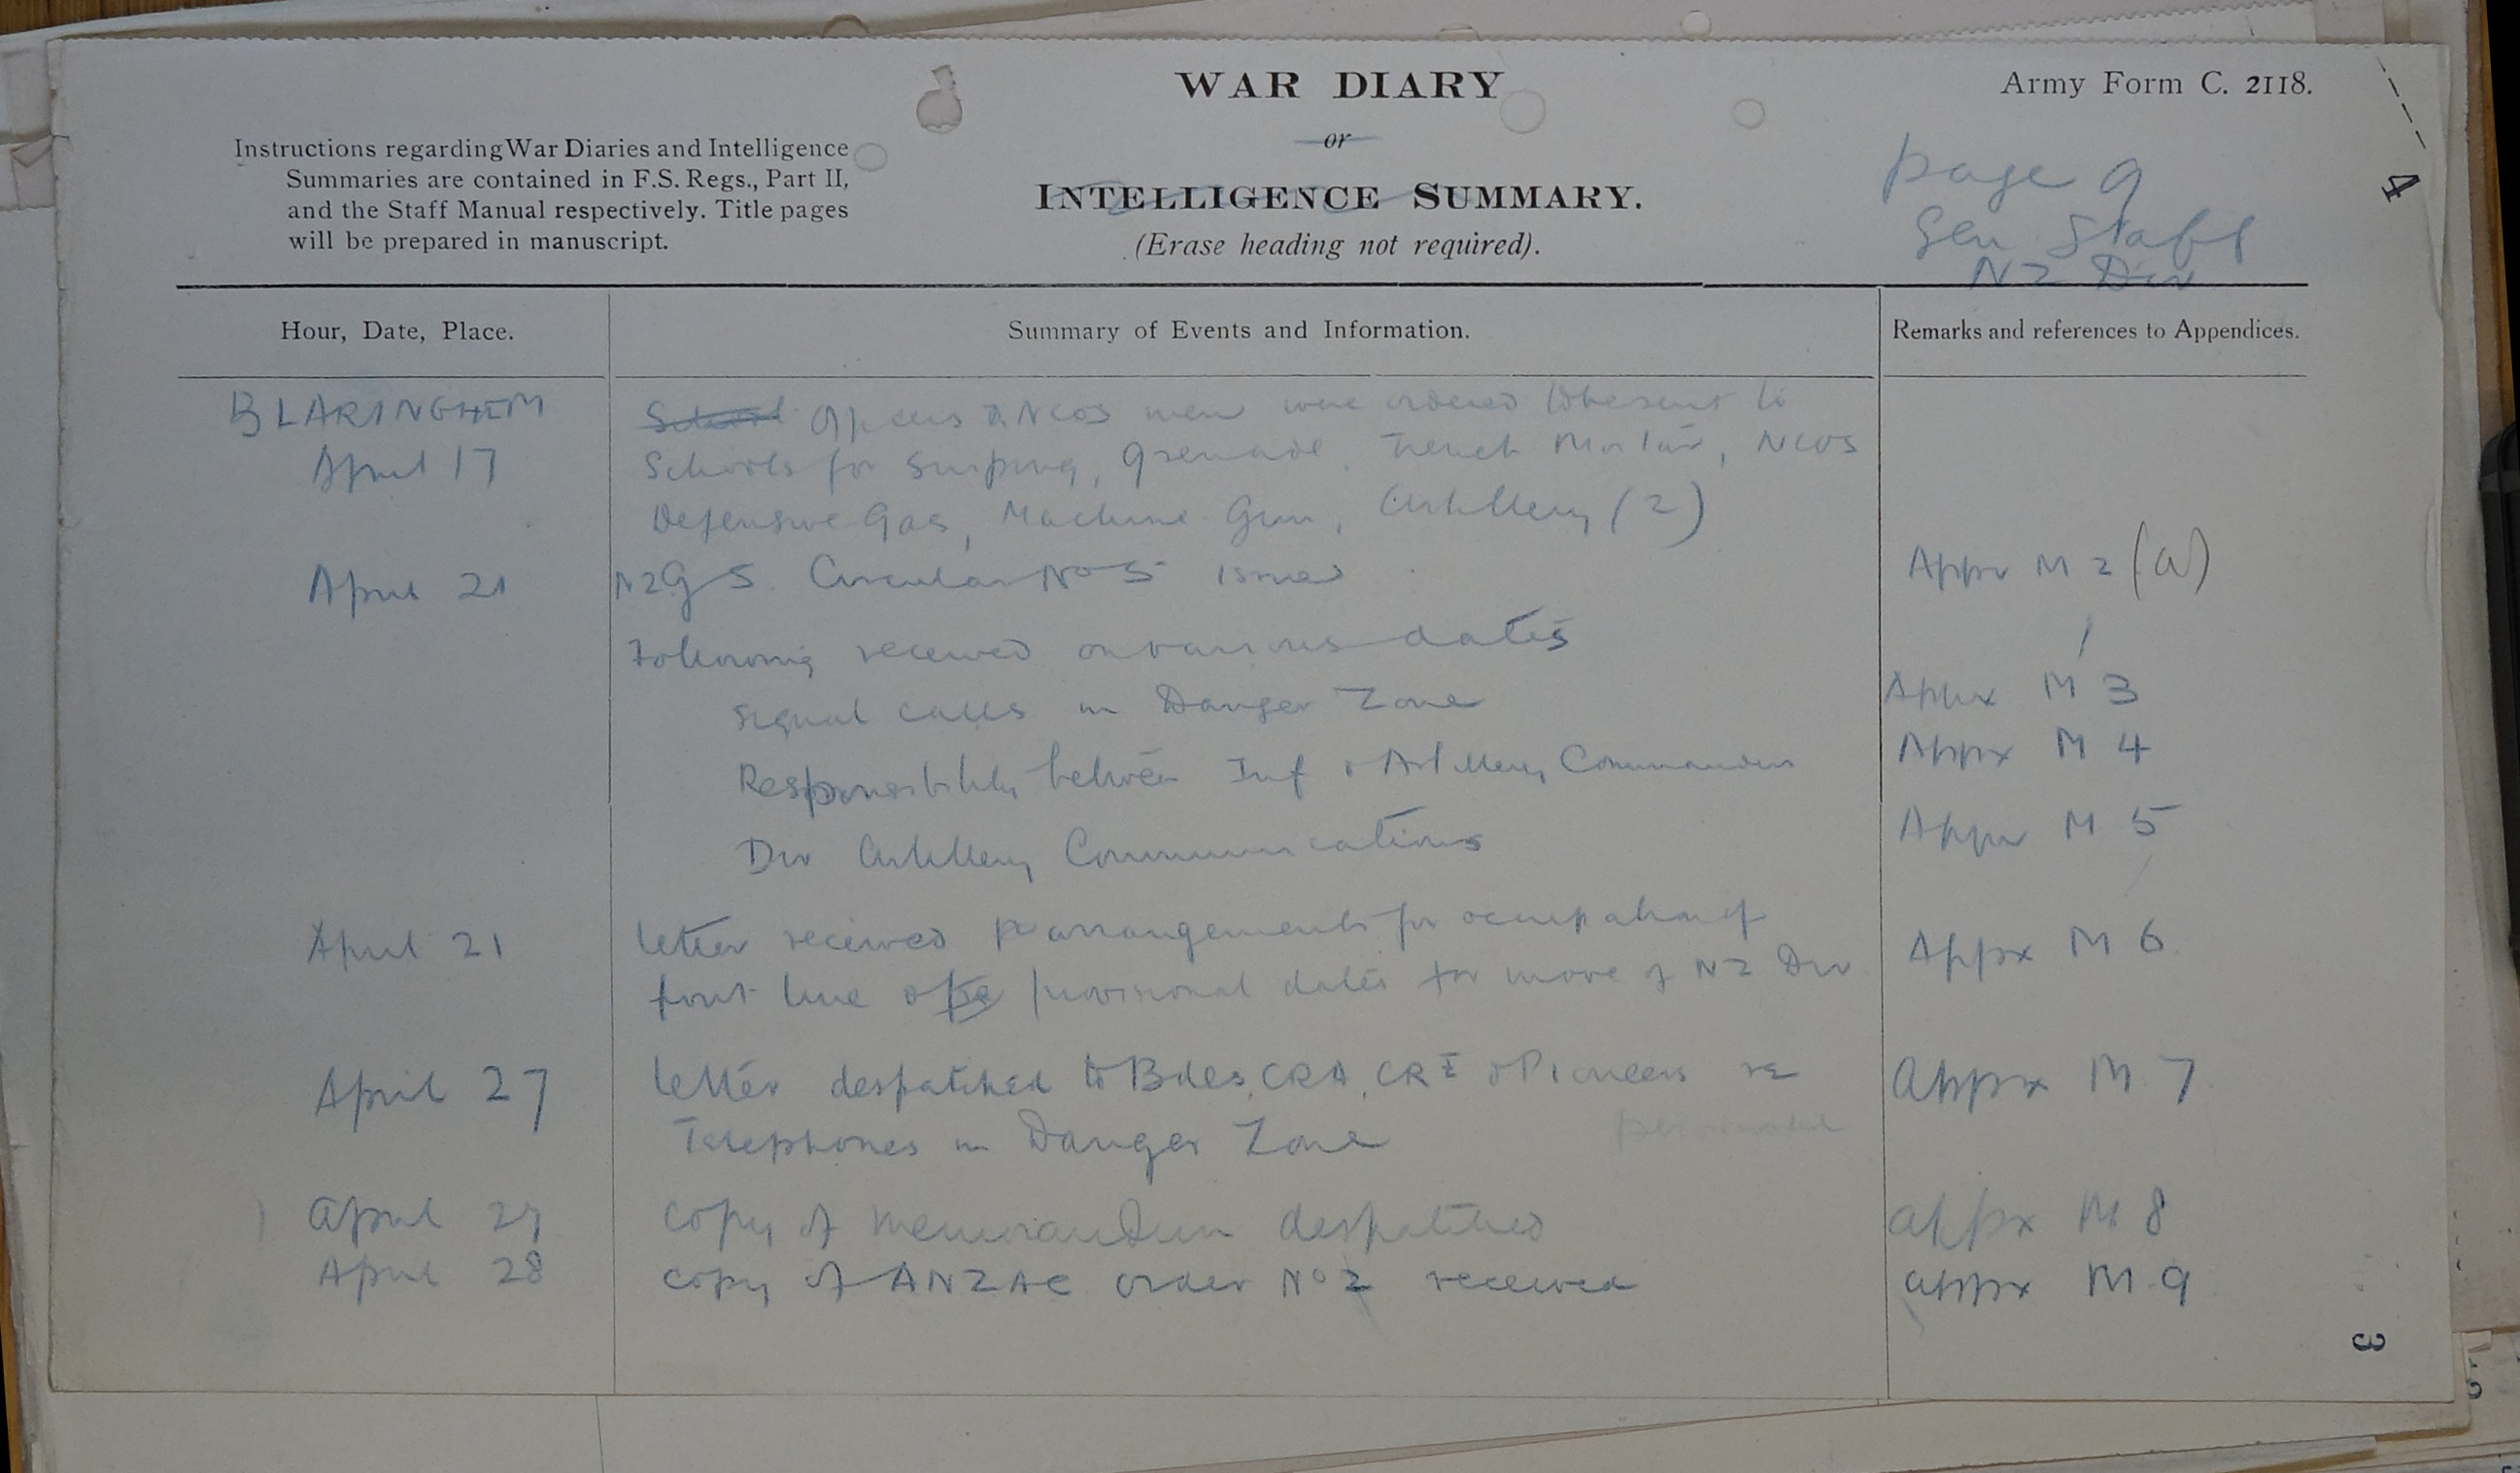 WAR DIARY
or
INTELLIGENCE SUMMARY.
(Erase heading not required).
Army Form C. 2118.
Instructions regarding War Diaries and Intelligence
Summaries are contained in F.S. Regs., Part II,
and the Staff Manual respectively. Title pages
will be prepared in manuscript.
page 9
Gen Staff
NZ Div
4
Hour, Date, Place.
Summary of Events and Information.
Remarks and references to Appendices.
BLARINGHEM
Officers & NCOs men were ordered to be sent to
April 17
Schools for Sniping, Grenade, Trench Mortar, NCOS
Defensive Gas, Machine Gun, Artillery (2)
April 21
NZGS Circular No 5 issued
Appx M 2 (a)
Following received on various dates
Signal calls in Danger Zone
Appx M 3
Responsibility between Inf & Artillery Commanders
Appx M 4
Div Artillery Communications
Appx M 5
April 21
letter received re arrangements for occupation of
front line & provisional dates for move of NZ Div
Appx M 6
April 27
letter despatched to Bdes, CRA, CRE & Pioneers re
Telephones in Danger Zone
Appx M 7
April 27
copy of memorandum despatched
appx M 8
April 28
copy of ANZAC order No 2 received
appx M 9
3